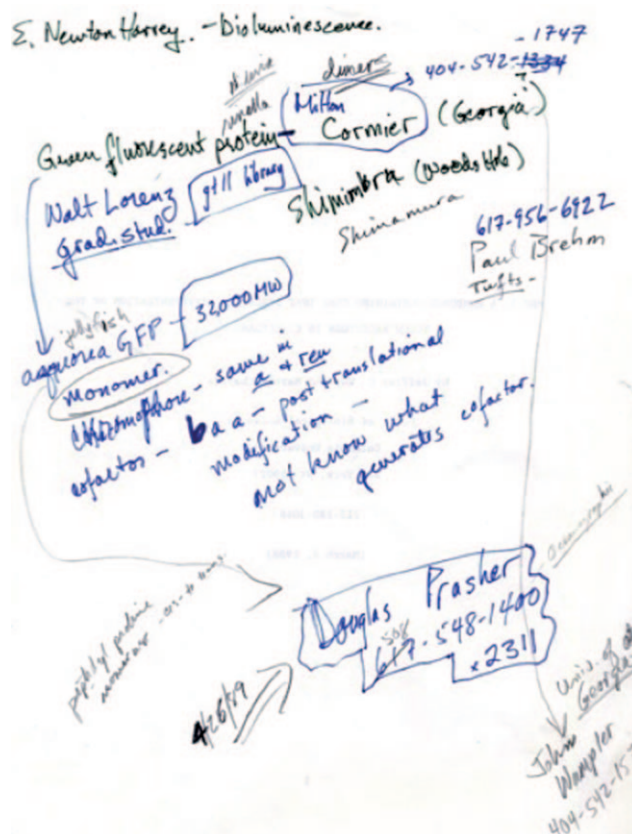 E. Newton Harvey. - Bioluminescence.
- 1747
404-542-1334
dimers
renilla
Milton
Green fluorescent protein - Cormier (Georgia)
Walt Lorenz
grad. stud.
gt11 library
Shimimbra (Woods Hole)
Shimamura
617-956-6922
Paul Brehm
Tufts -
jellyfish
aequorea GFP - 32,000 MW
monomer.
chromophore - same in
a + ren
cofactor - 6 a a - post translational
modification -
not know what
generates cofactor.
Douglas Prasher
508
617-548-1400
x2311
4/26/89
peptidyl proline
- cis-to trans
Univ. of
Georgia
John
Wampler
404-542-15